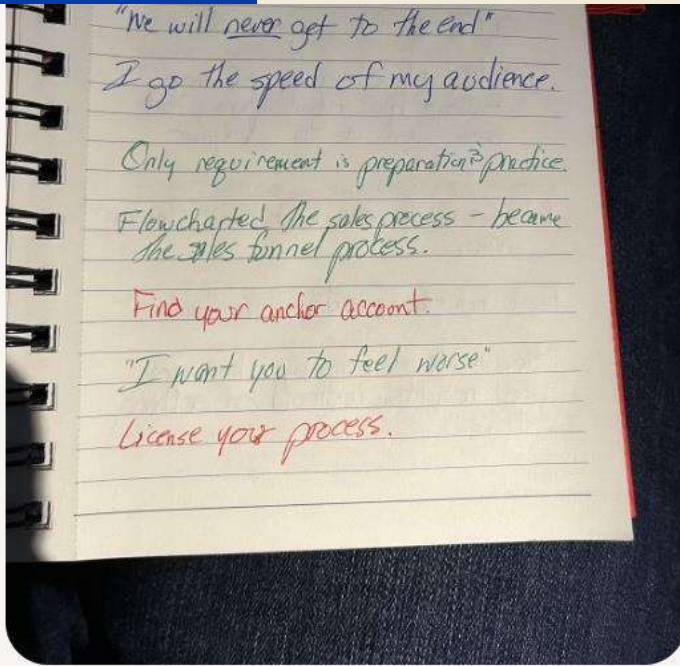 "We will never get to the end"
I go the speed of my audience.
Only requirement is preparation & practice.
Flowcharted the sales process – became
the sales funnel process.
Find your anchor account.
"I want you to feel worse"
License your process.